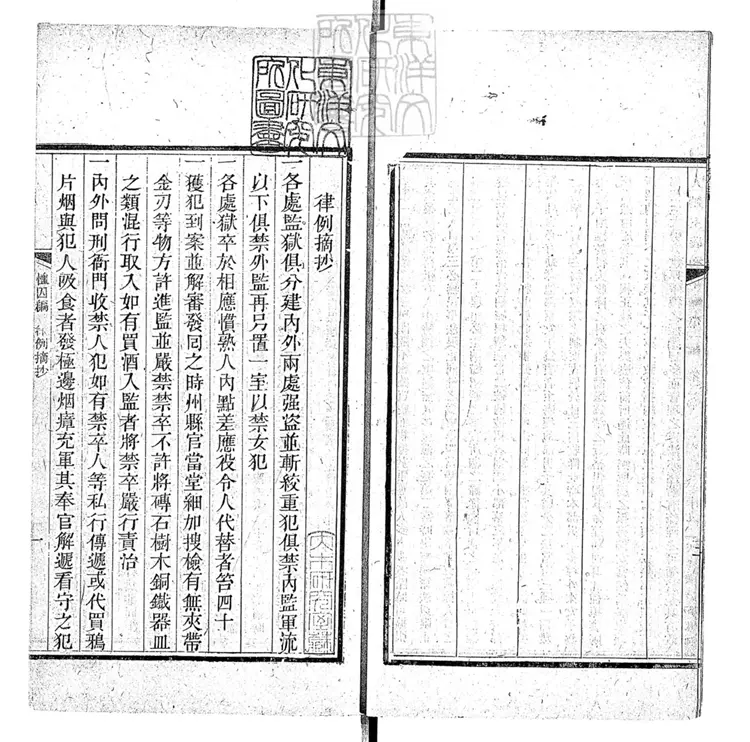 律例摘抄
一各處監獄俱分建內外兩處强盗並斬絞重犯俱禁內監軍流
以下俱禁外監再另置一室以禁女犯
一各處獄卒於相應慣熟人內點差應役令人代替者笞四十
一獲犯到案並解審發回之時州縣官當堂細加搜檢有無夾帶
金刃等物方許進監並嚴禁禁卒不許將磚石樹木銅鐵器皿
之類混行取入如有買酒入監者將禁卒嚴行責治
一內外問刑衙門收禁人犯如有禁卒人等私行傳遞或代買鴉
片烟與犯人吸食者發極邊烟瘴充軍其奉官解遞看守之犯
恤囚編
律例摘抄
一
東洋文
化研究
所圖書